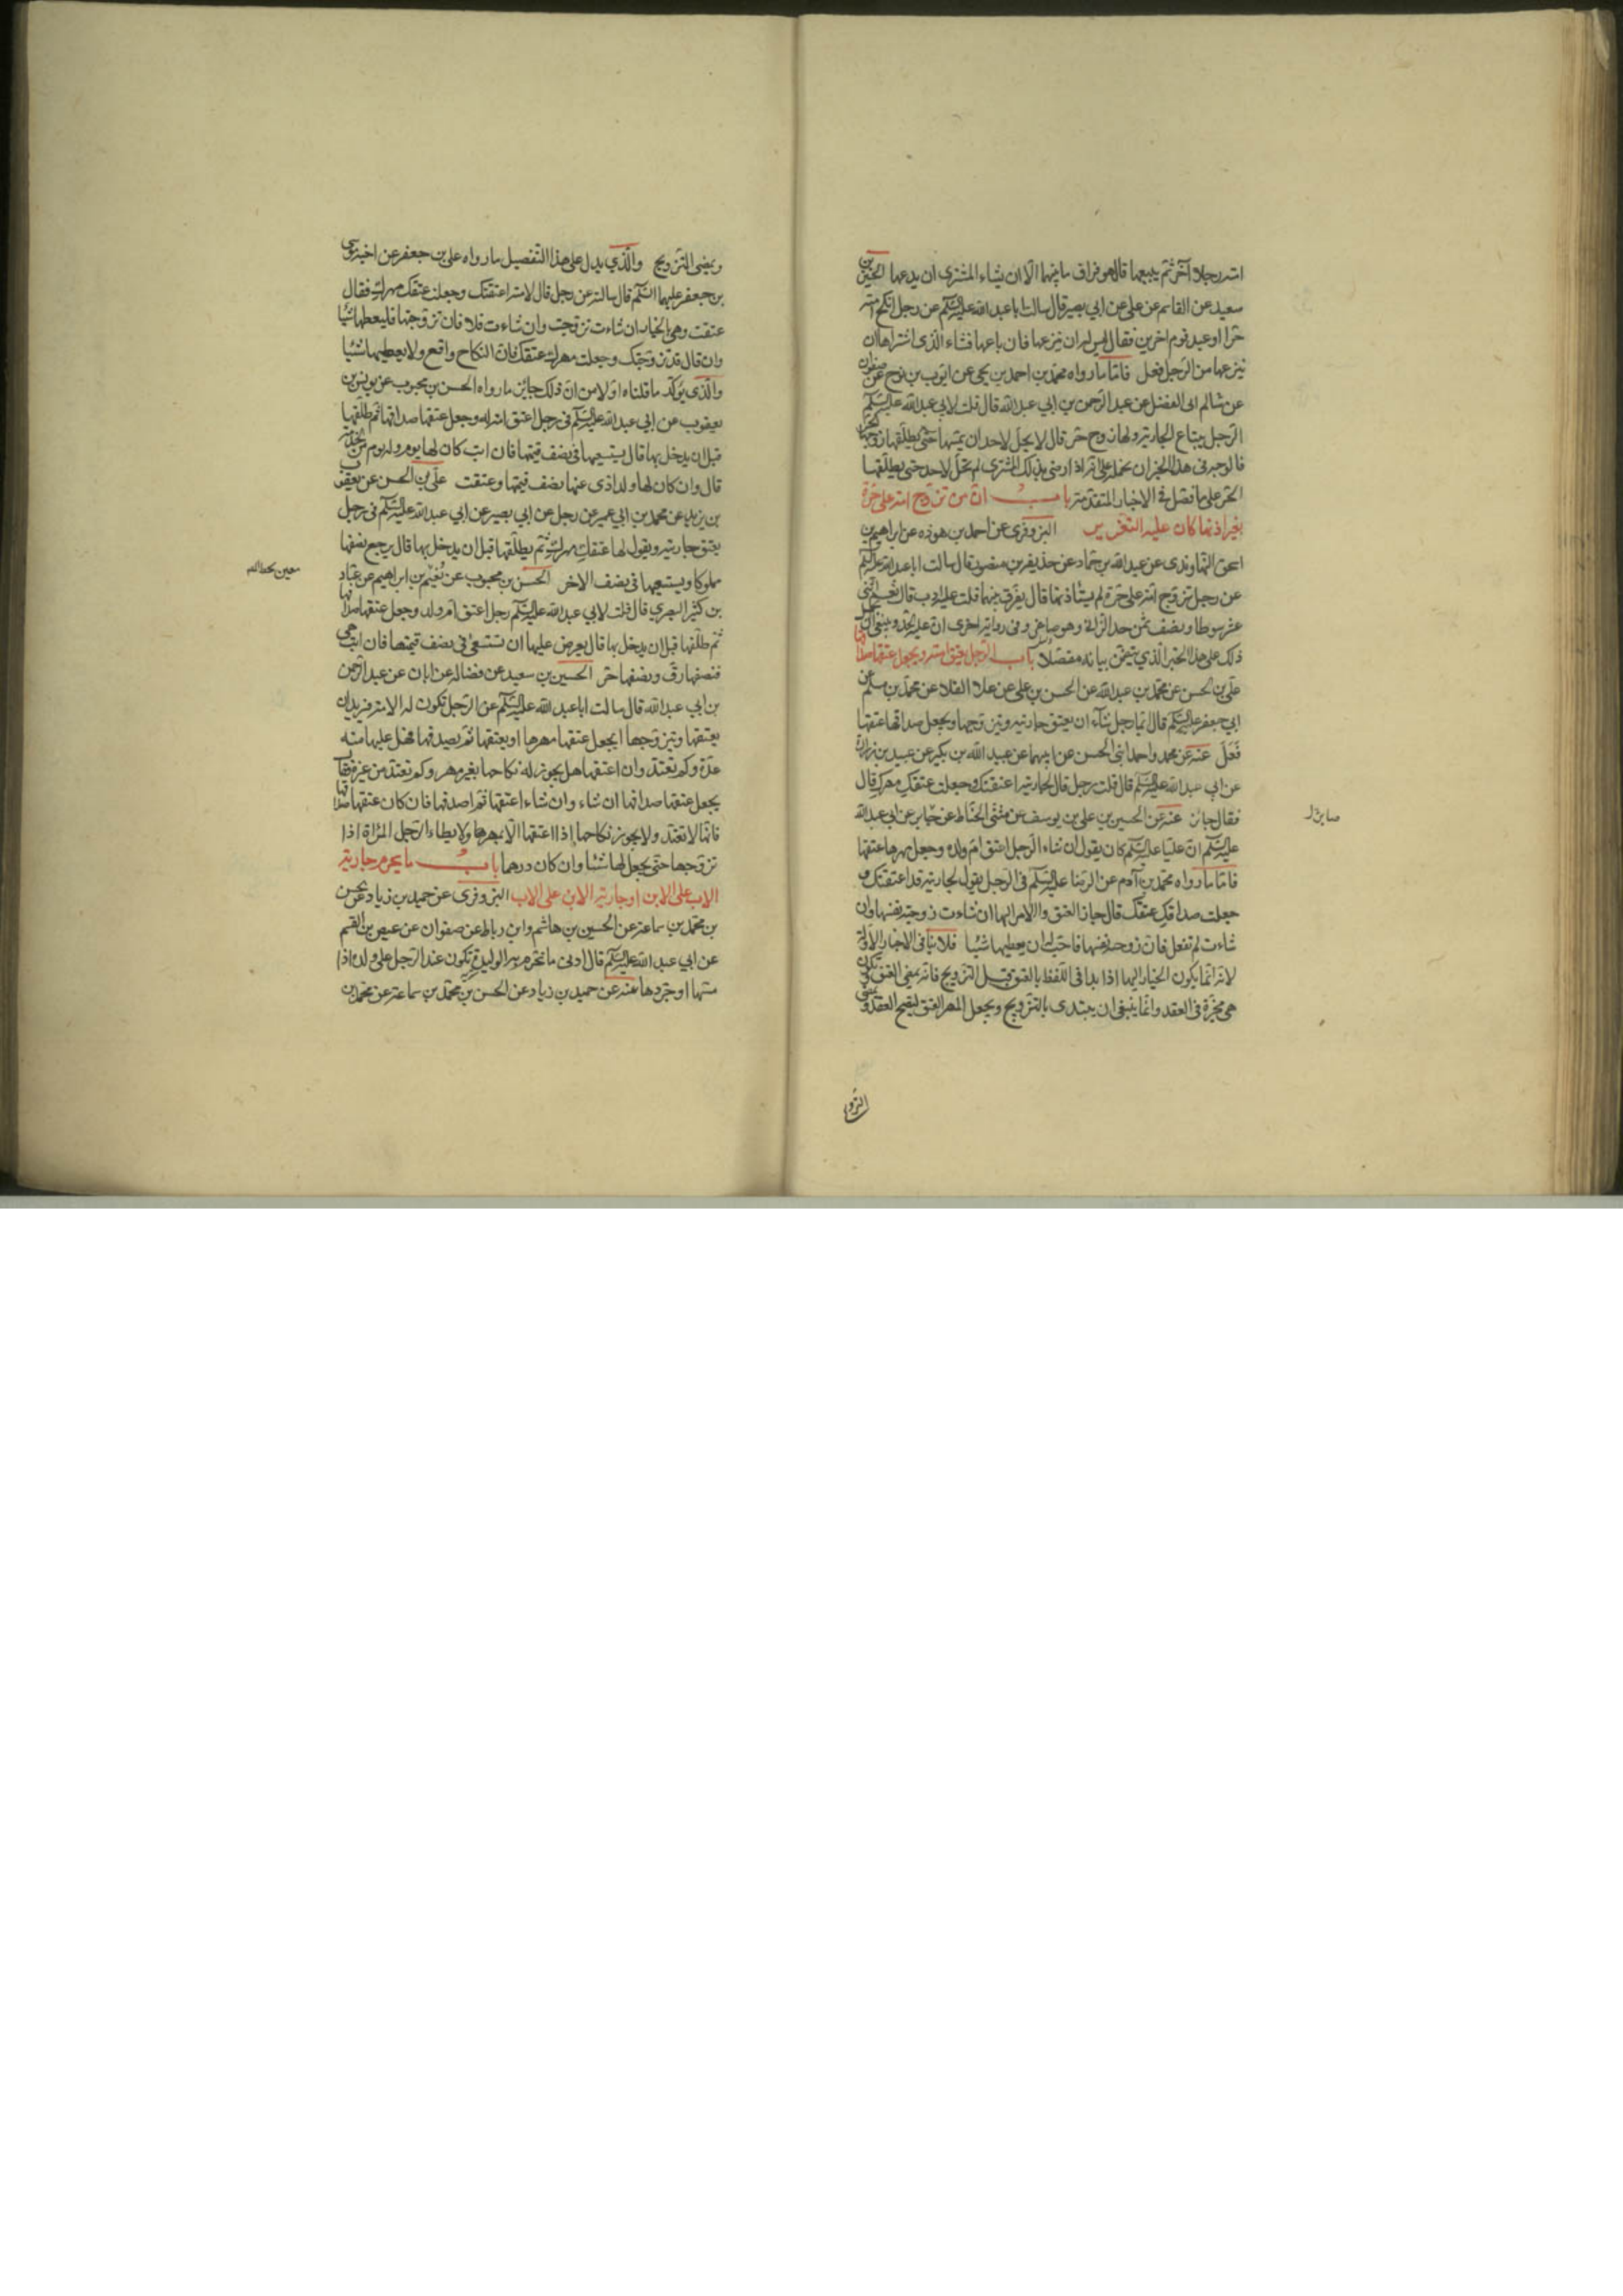 امته رجلا آخر ثم يبيعها قال هو فراق ما بينهما الا ان يشاء المشترى ان يدعها الحسين بن
سعيد عن القاسم عن على عن ابي بصير قال سالت ابا عبد الله عليه السلم عن رجل انكح امته
حرا او عبد قوم اخرين فقال ليس له ان ينزعها فان باعها فشاء الذى اشتراها ان
ينزعها من الرجل فعل فامّا ما رواه محمد بن احمد بن يحيى عن ايوب بن نوح عن صفوان
عن سالم ابى الفضل عن عبد الرحمن بن ابي عبد الله قال قلت لابي عبد الله عليه السلم
الرجل يبتاع الجارية ولها زوج حر قال لا يحل لاحد ان يمسها حتى يطلقها زوجها الحر
فالوجه فى هذا الخبر ان نحمله على انه اذا رضى بذلك المشترى لم تحل لاحد حتى يطلقها
الحر على ما فصل فى الاخبار المتقدمة باب ان من تزوج امة على حرة
بغير اذنها كان عليه التعزير البزوفرى عن احمد بن هوذه عن ابراهيم بن
اسحق النهاوندى عن عبد الله بن حماد عن حذيفة بن منصور قال سالت ابا عبد الله عليه السلم
عن رجل تزوج امة على حرة لم يستاذنها قال يفرق بينهما قلت عليه ادب قال نعم اثنى
عشر سوطا ونصف ثمن حد الزانى وهو صاغر وفى رواية اخرى ان عليه الحد وينبغى ان نحمل
ذلك على هذا الخبر الذي تضمن بيانه مفصلا باب الرجل يعتق امته ويجعل عتقها صداقها
على بن الحسن عن محمد بن عبد الله عن الحسن بن على عن علا القلا عن محمد بن مسلم عن
ابي جعفر عليه السلم قال ايما رجل شآء ان يعتق جاريته ويتزوجها ويجعل صداقها عتقها
فعل عنه عن محمد واحمد ابنى الحسن عن ابيهما عن عبد الله بن بكير عن عبيد بن زرارة
عن ابي عبد الله عليه السلم قال قلت رجل قال لجاريته اعتقتك وجعلت عتقك مهرك قال
فقال جائز عنه عن الحسين بن على بن يوسف عن مثنى الحناط عن جابر عن ابي عبد الله
عليه السلم ان عليا عليه السلم كان يقول ان شاء الرجل اعتق ام ولده وجعل مهرها عتقها
فامّا ما رواه محمد بن آدم عن الرضا عليه السلم فى الرجل يقول لجاريته قد اعتقتك و
جعلت صداقك عتقك قال جاز العتق والامر اليها ان شاءت زوجته نفسها وان
شاءت لم تفعل فان زوجته نفسها فاحب له ان يعطيها شيئا فلا ينافى الاخبار الاولة
لانه انما يكون الخيار اليها اذا بدا فى اللفظ بالعتق قبل التزويج فانه يمضى العتق وتكون
هى مخيرة فى العقد وانما ينبغى ان يبتدى بالتزويج ويجعل المهر العتق ليصح العقد ويمضى
صابر ل
التزو
ويمضى التزويج والذي يدل على هذا التفصيل ما رواه على بن جعفر عن اخيه موسى
بن جعفر عليهما السلم قال سالته عن رجل قال لامته اعتقتك وجعلت عتقك مهرك فقال
عتقت وهى بالخيار ان شاءت تزوجت وان شاءت فلا فان تزوجتها فليعطها شيئا
وان قال قد تزوجتك وجعلت مهرك عتقك فان النكاح واقع ولا يعطيها شيئا
والذي يؤكد ما قلناه اولا من ان ذلك جائز ما رواه الحسن بن محبوب عن يونس بن
يعقوب عن ابي عبد الله عليه السلم فى رجل اعتق امة له وجعل عتقها صداقها ثم طلقها
قبل ان يدخل بها قال يستسعيها فى نصف قيمتها فان ابت كان لها يوم وله يوم من الخدمة
قال وان كان لها ولد ادى عنها نصف قيمتها وعتقت على بن الحسن عن يعقوب
بن يزيد عن محمد بن ابي عمير عن رجل عن ابي بصير عن ابي عبد الله عليه السلم فى رجل
يعتق جاريته ويقول لها عتقك مهرك ثم يطلقها قبل ان يدخل بها قال يرجع نصفها
مملوكا ويستسعيها فى نصف الاخر الحسن بن محبوب عن نعيم بن ابراهيم عن عباد
بن كثير البصري قال قلت لابي عبد الله عليه السلم رجل اعتق ام ولد وجعل عتقها صداقها
ثم طلقها قبل ان يدخل بها قال يعرض عليها ان تستسعى فى نصف قيمتها فان ابت هى
فنصفها رق ونصفها حر الحسين بن سعيد عن فضاله عن ابان عن عبد الرحمن
بن ابي عبد الله قال سالت ابا عبد الله عليه السلم عن الرجل تكون له الامة فيريد ان
يعتقها ويتزوجها ايجعل عتقها مهرها او يعتقها ثم يصدقها وهل عليها منه
عدة وكم تعتد وان اعتقها هل يجوز له نكاحها بغير مهر وكم تعتد من غيره فقال
يجعل عتقها صداقها ان شاء وان شاء اعتقها ثم اصدقها فان كان عتقها صداقها
فانها لا تعتد ولا يجوز نكاحها اذا اعتقها الا بمهر ولا يطاء الرجل المراة اذا
تزوجها حتى يجعل لها شيئا وان كان درهما باب ما يحرم جارية
الاب على الابن او جارية الابن على الاب البزوفرى عن حميد بن زياد عن الحسن
بن محمد بن سماعة عن الحسين بن هاشم وابن رباط عن صفوان عن عيص بن القسم
عن ابي عبد الله عليه السلم قال ادنى ما تحرم به الوليدة تكون عند الرجل على ولده اذا
مسها او جردها عنه عن حميد بن زياد عن الحسن بن محمد بن سماعة عن محمد بن